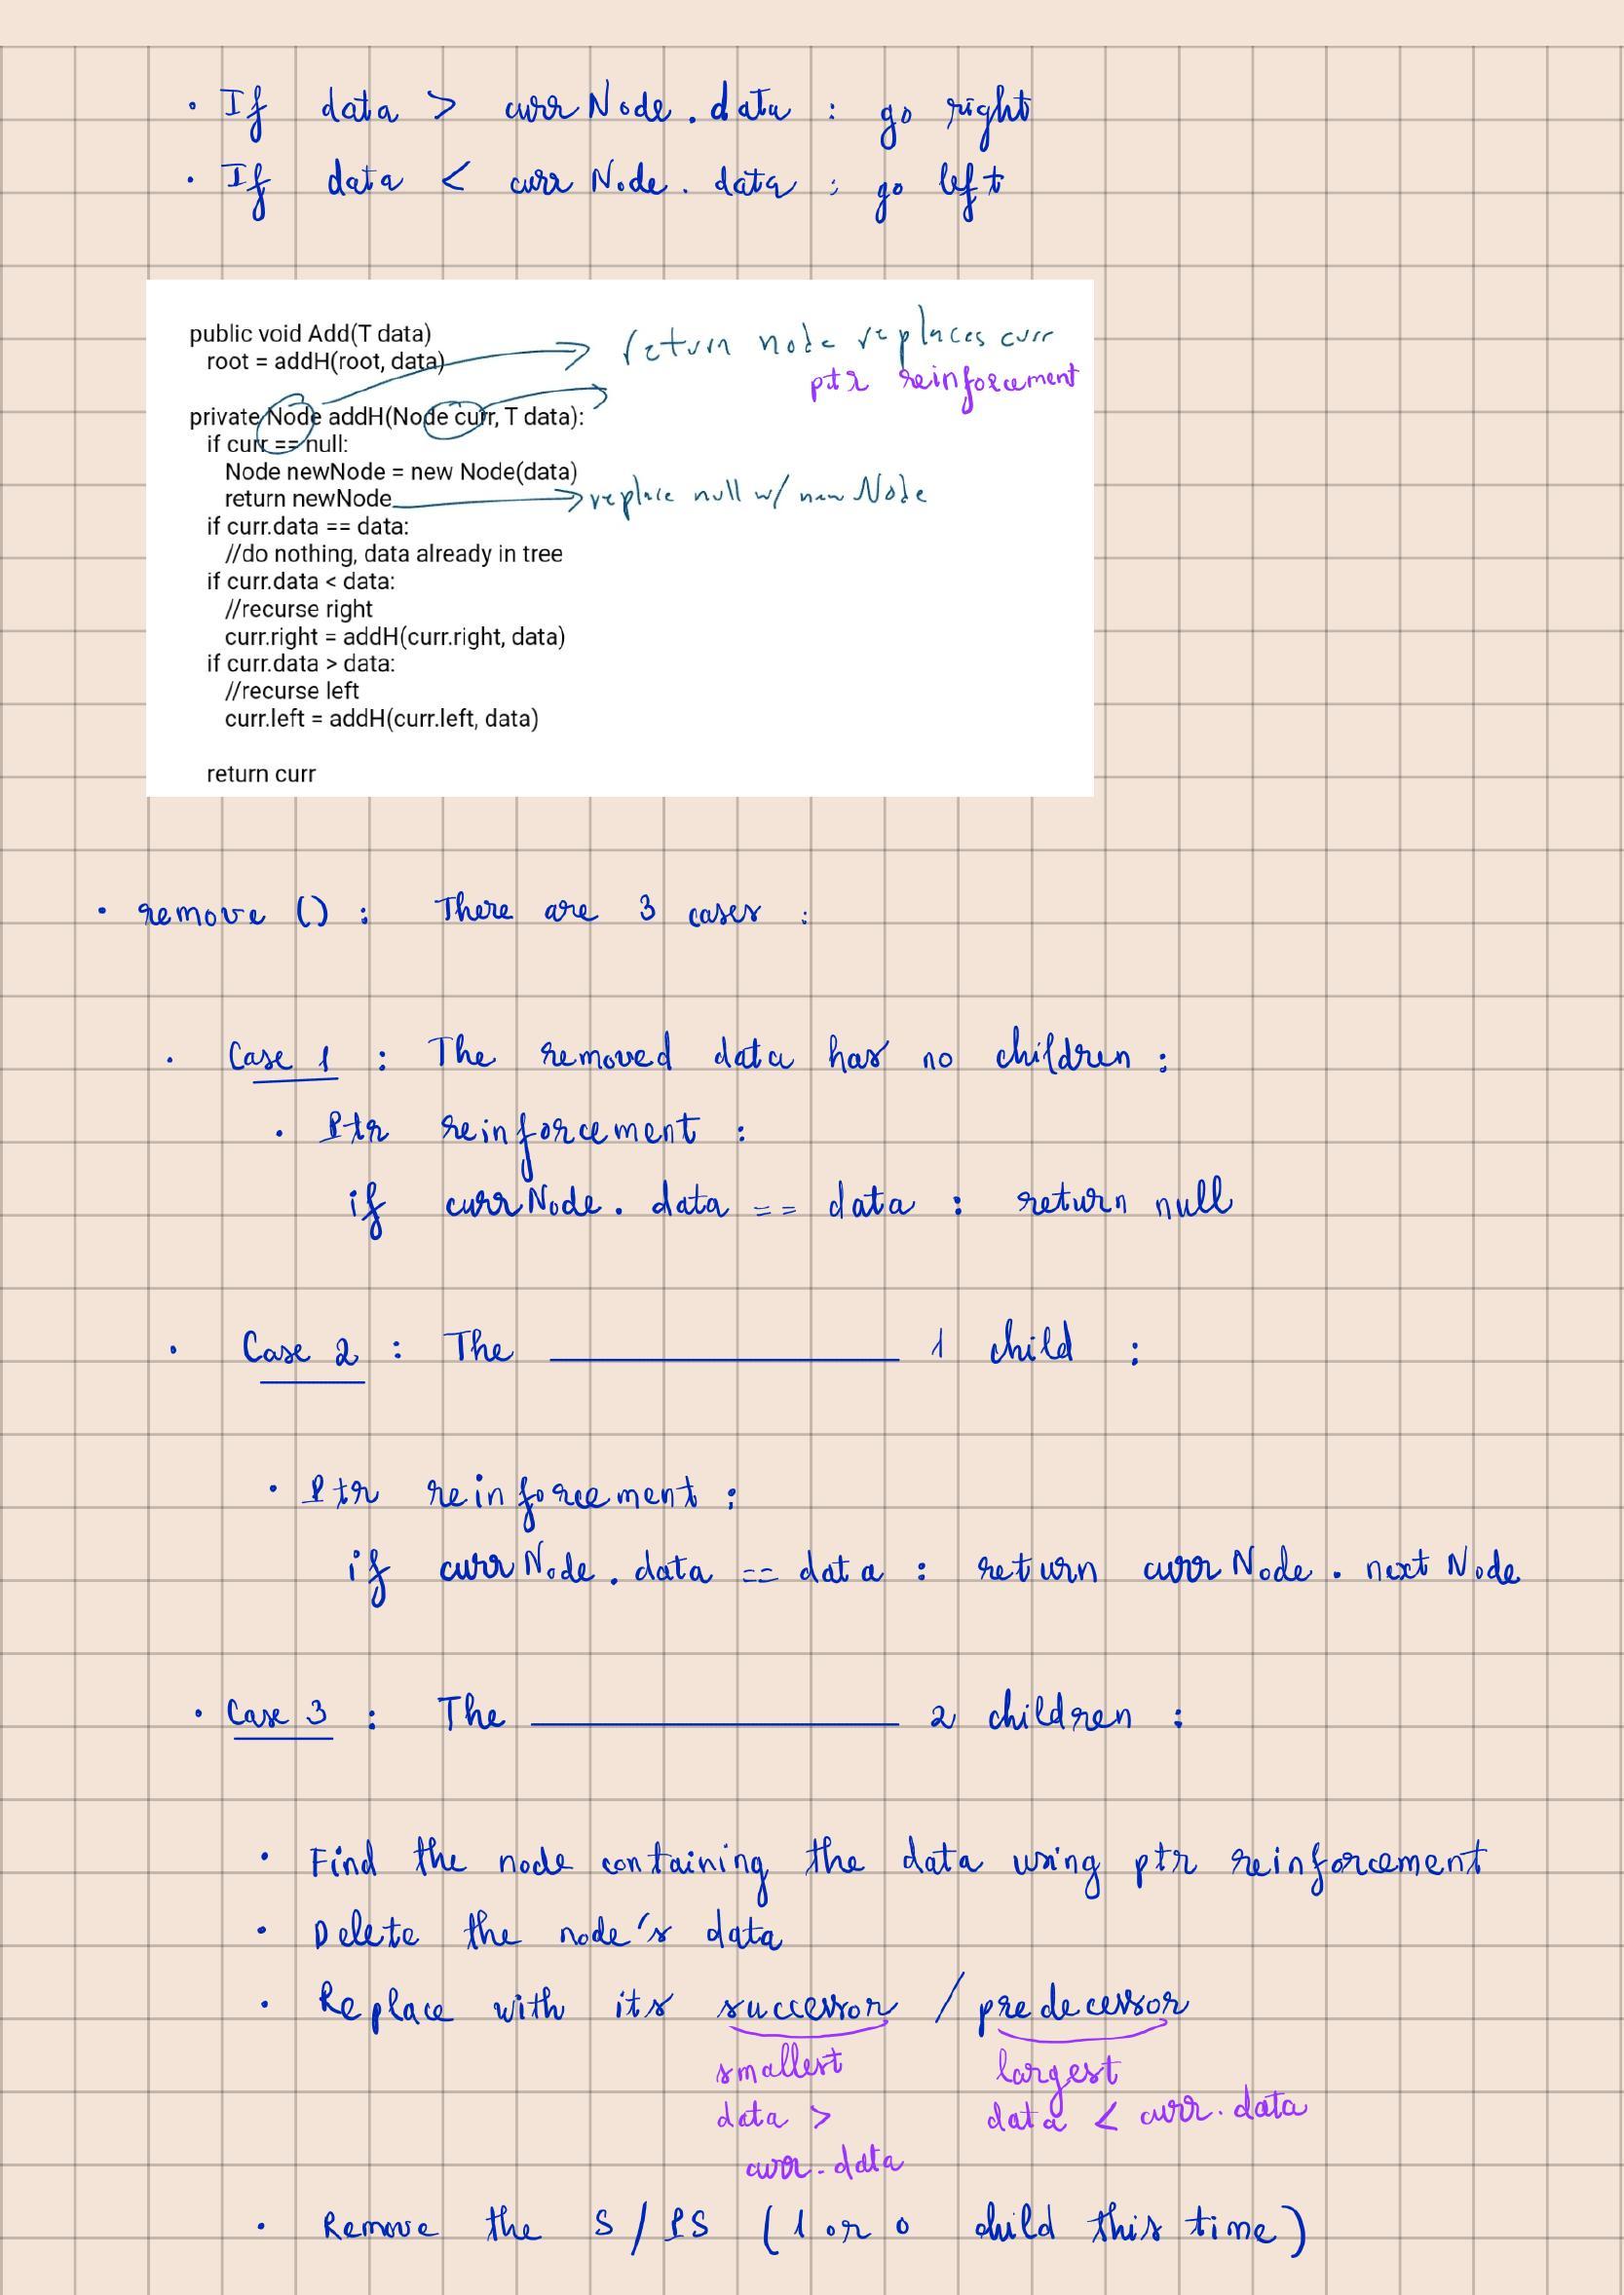 · If data > currNode.data : go right
· If data < currNode.data : go left
public void Add(T data)
root = addH(root, data)
return node replaces curr
ptr reinforcement
private Node addH(Node curr, T data):
if curr == null:
Node newNode = new Node(data)
return newNode
replace null w/ new Node
if curr.data == data:
//do nothing, data already in tree
if curr.data < data:
//recurse right
curr.right = addH(curr.right, data)
if curr.data > data:
//recurse left
curr.left = addH(curr.left, data)
return curr
· remove () : There are 3 cases :
· Case 1 : The removed data has no children :
· Ptr reinforcement :
if currNode.data == data : return null
· Case 2 : The __________ 1 child :
· Ptr reinforcement :
if currNode.data == data : return currNode.nextNode
· Case 3 : The __________ 2 children :
· Find the node containing the data using ptr reinforcement
· Delete the node's data
· Replace with its successor / predecessor
smallest largest
data > data < curr.data
curr.data
· Remove the S/PS (1 or 0 child this time)